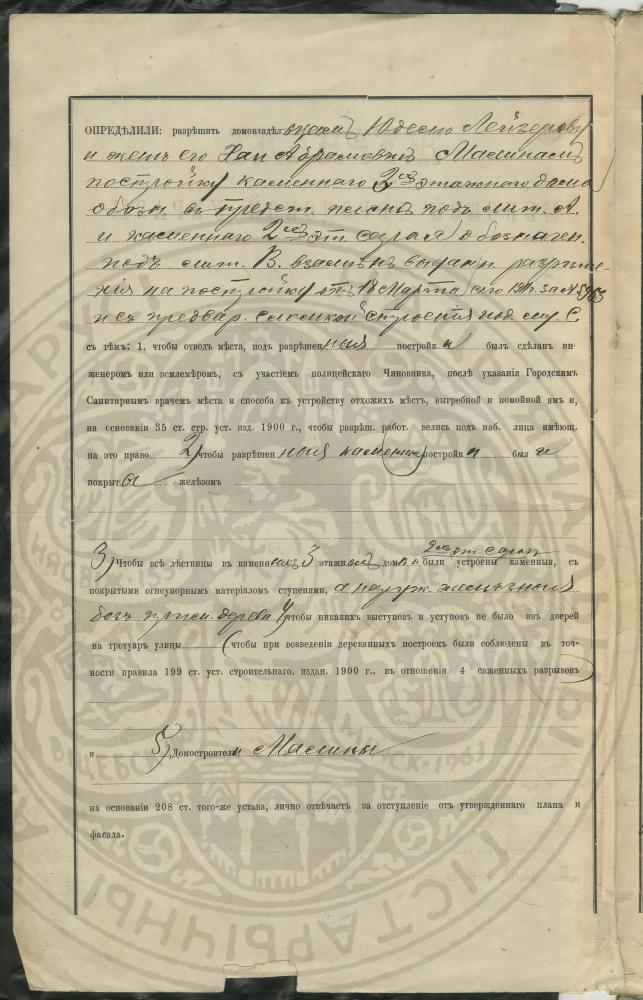 ОПРЕДѢЛИЛИ: разрѣшить домовладѣльцамъ Юдесю Лейзерову
и женѣ его Хаѣ Абрамовнѣ Маслинамъ
постройку каменнаго 2хъ этажнаго дома
обозн. въ предст. планѣ подъ лит. А.
и каменнаго 2хъ эт. сарая обозначен.
подъ лит. В. взамѣнъ выдан. разрѣше-
нія на постройку отъ 18 Марта сего за №
и съ предвар. сломкой строенія под лит. С.
съ тѣмъ: 1, чтобы отводъ мѣста, подъ разрѣшенныя постройки былъ сдѣланъ ин-
женеромъ или землемѣромъ, съ участіемъ полицейскаго Чиновника, послѣ указанія Городскимъ
Санитарнымъ врачемъ мѣста и способа къ устройству отхожихъ мѣстъ, выгребной и помойной ямъ и,
на основаніи 35 ст. стр. уст. изд. 1900 г., чтобы разрѣш. работ. велись подъ наб. лица имѣющ.
на это право 2) чтобы разрѣшенныя каменныя постройки были
покрыты желѣзомъ
3) Чтобы всѣ лѣстницы въ каменныхъ этажн. дома и 2хъ эт. сарая были устроены каменныя, съ
покрытыми огнеупорнымъ матеріаломъ ступенями, а наруж. желѣзныя
безъ прим. дерева 4) чтобы никакихъ выступовъ и уступовъ не было изъ дверей
на тротуаръ улицы (чтобы при возведеніи деревянныхъ построекъ были соблюдены въ точ-
ности правила 199 ст. уст. строительнаго. издан. 1900 г., въ отношеніи 4 саженныхъ разрывовъ)
и 5) Домостроители Маслины
на основаніи 208 ст. того-же устава, лично отвѣчаетъ за отступленіе отъ утвержденнаго плана и
фасада.